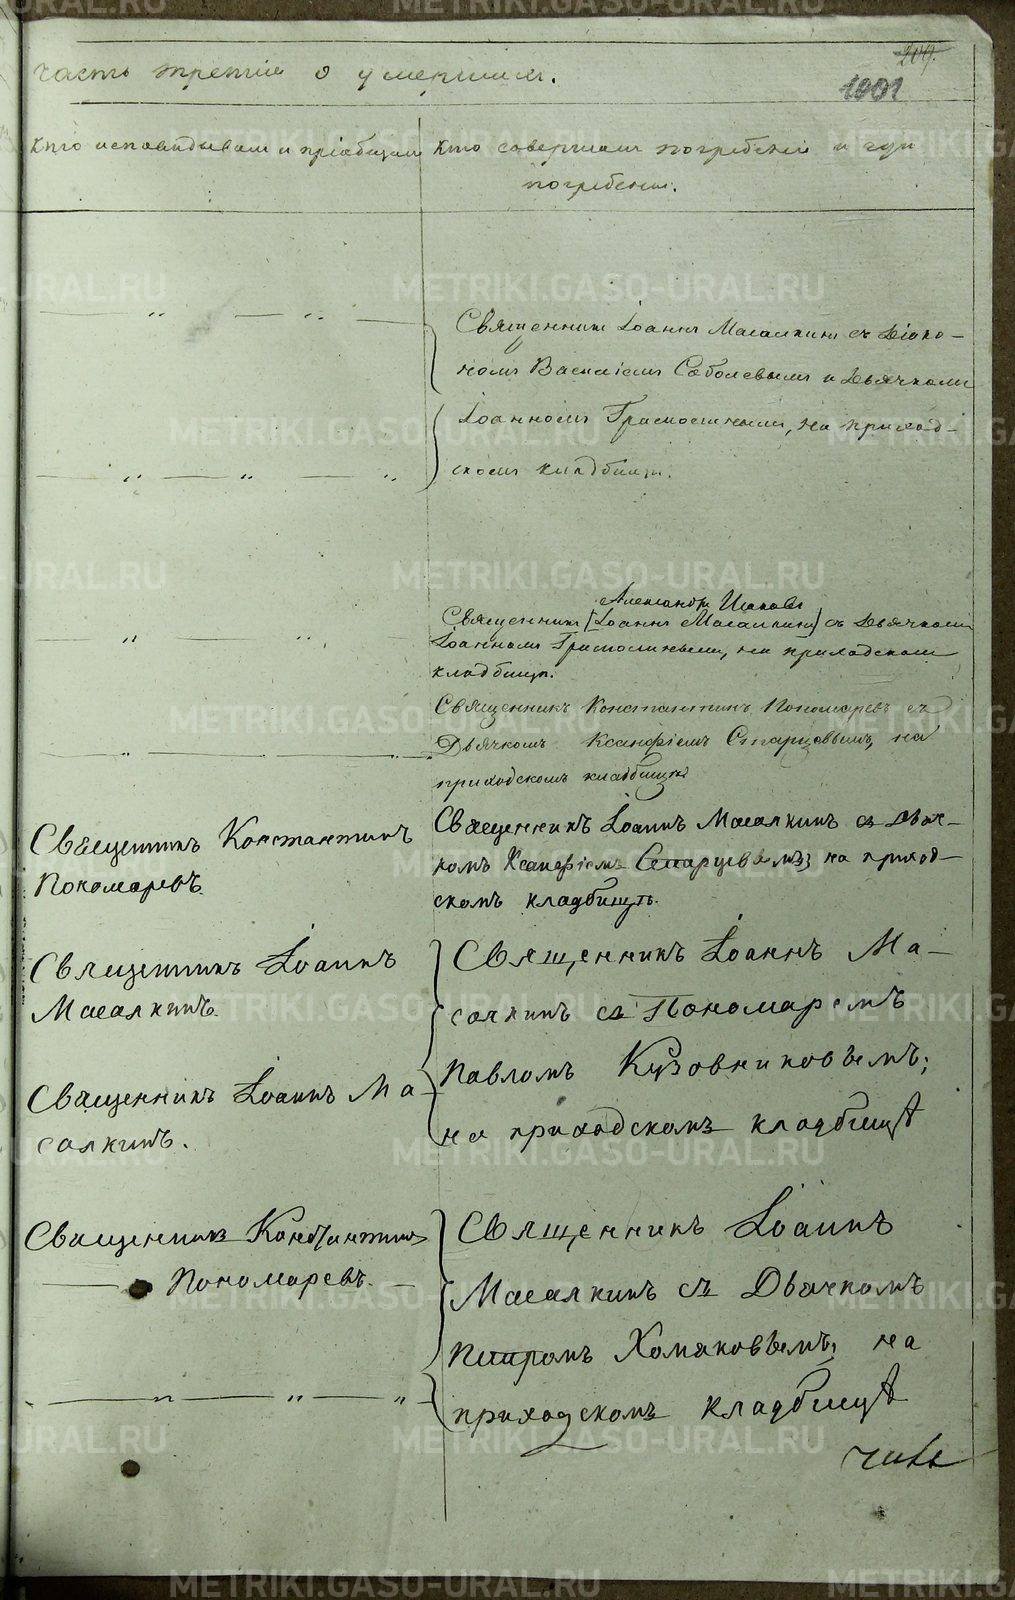 209.
часть третія о умершихъ.
1001
Кто исповѣдывалъ и пріобщалъ
Кто совершалъ погребеніе и гдѣ
погребены.
Священникъ Іоаннъ Масалкинъ съ Діако-
номъ Василіемъ Соболевымъ и Дьячкомъ
Іоанномъ Грамолинымъ, на приход-
скомъ кладбищѣ.
Александръ Исаковъ
Священникъ [Іоаннъ Масалкинъ] съ Дьячкомъ
Іоанномъ Грамолинымъ, на приходскомъ
кладбищѣ.
Священникъ Константинъ Пономаревъ съ
Дьячкомъ Ксанфіемъ Старцовымъ, на
приходскомъ кладбищѣ
Священникъ Константинъ
Пономаревъ.
Священникъ Іоаннъ Масалкинъ съ Дьяч-
комъ Ксанфіемъ Старцевымъ, на приход-
скомъ кладбищѣ.
Священникъ Іоаннъ
Масалкинъ.
Священникъ Іоаннъ Ма-
салкинъ съ Пономаремъ
Павломъ Кузовниковымъ;
на приходскомъ кладбищѣ
Священникъ Іоаннъ Ма-
салкинъ.
Священникъ Константинъ
Пономаревъ.
Священникъ Іоаннъ
Масалкинъ съ Дьячкомъ
Петромъ Хомяковымъ, на
приходскомъ кладбищѣ
METRIKI.GASO-URAL.RU